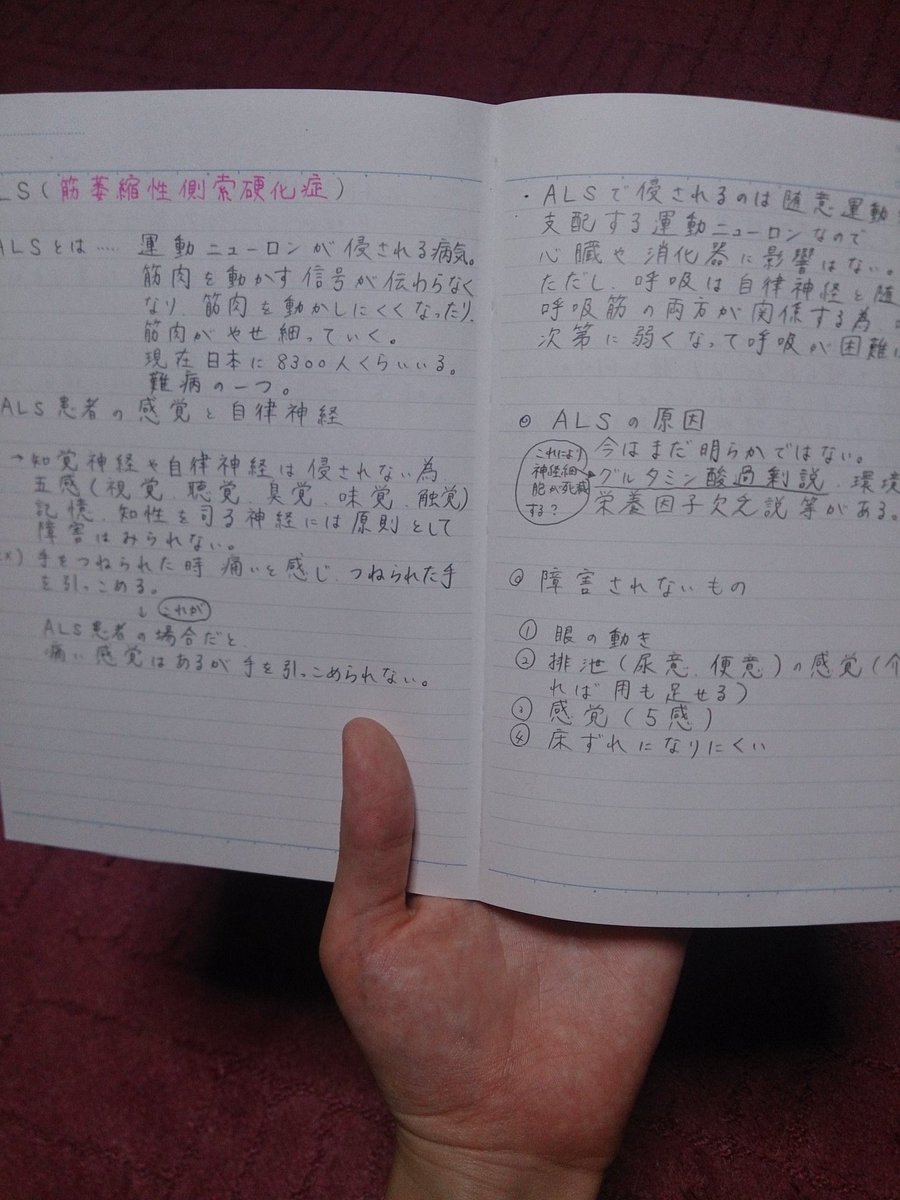 LS(筋萎縮性側索硬化症)
ALSとは…… 運動ニューロンが侵される病気。
筋肉を動かす信号が伝わらなく
なり、筋肉を動かしにくくなったり、
筋肉がやせ細っていく。
現在日本に8300人くらいいる。
難病の一つ。
ALS患者の感覚と自律神経
→知覚神経や自律神経は侵されない為
五感(視覚、聴覚、臭覚、味覚、触覚)
記憶、知性を司る神経には原則として
障害はみられない。
x) 手をつねられた時 痛いと感じ、つねられた手
を引っこめる。
↓ これが
ALS患者の場合だと
痛い感覚はあるが手を引っこめられない。
・ALSで侵されるのは随意運動
支配する運動ニューロンなので
心臓や消化器に影響はない。
ただし、呼吸は自律神経と随
呼吸筋の両方が関係する為、
次第に弱くなって呼吸が困難
◎ ALSの原因
今はまだ明らかではない。
グルタミン酸過剰説、環境
栄養因子欠乏説等がある。
これにより
神経細
胞が死滅
する?
◎ 障害されないもの
① 眼の動き
② 排泄(尿意、便意)の感覚(介
れば用も足せる)
③ 感覚(5感)
④ 床ずれになりにくい